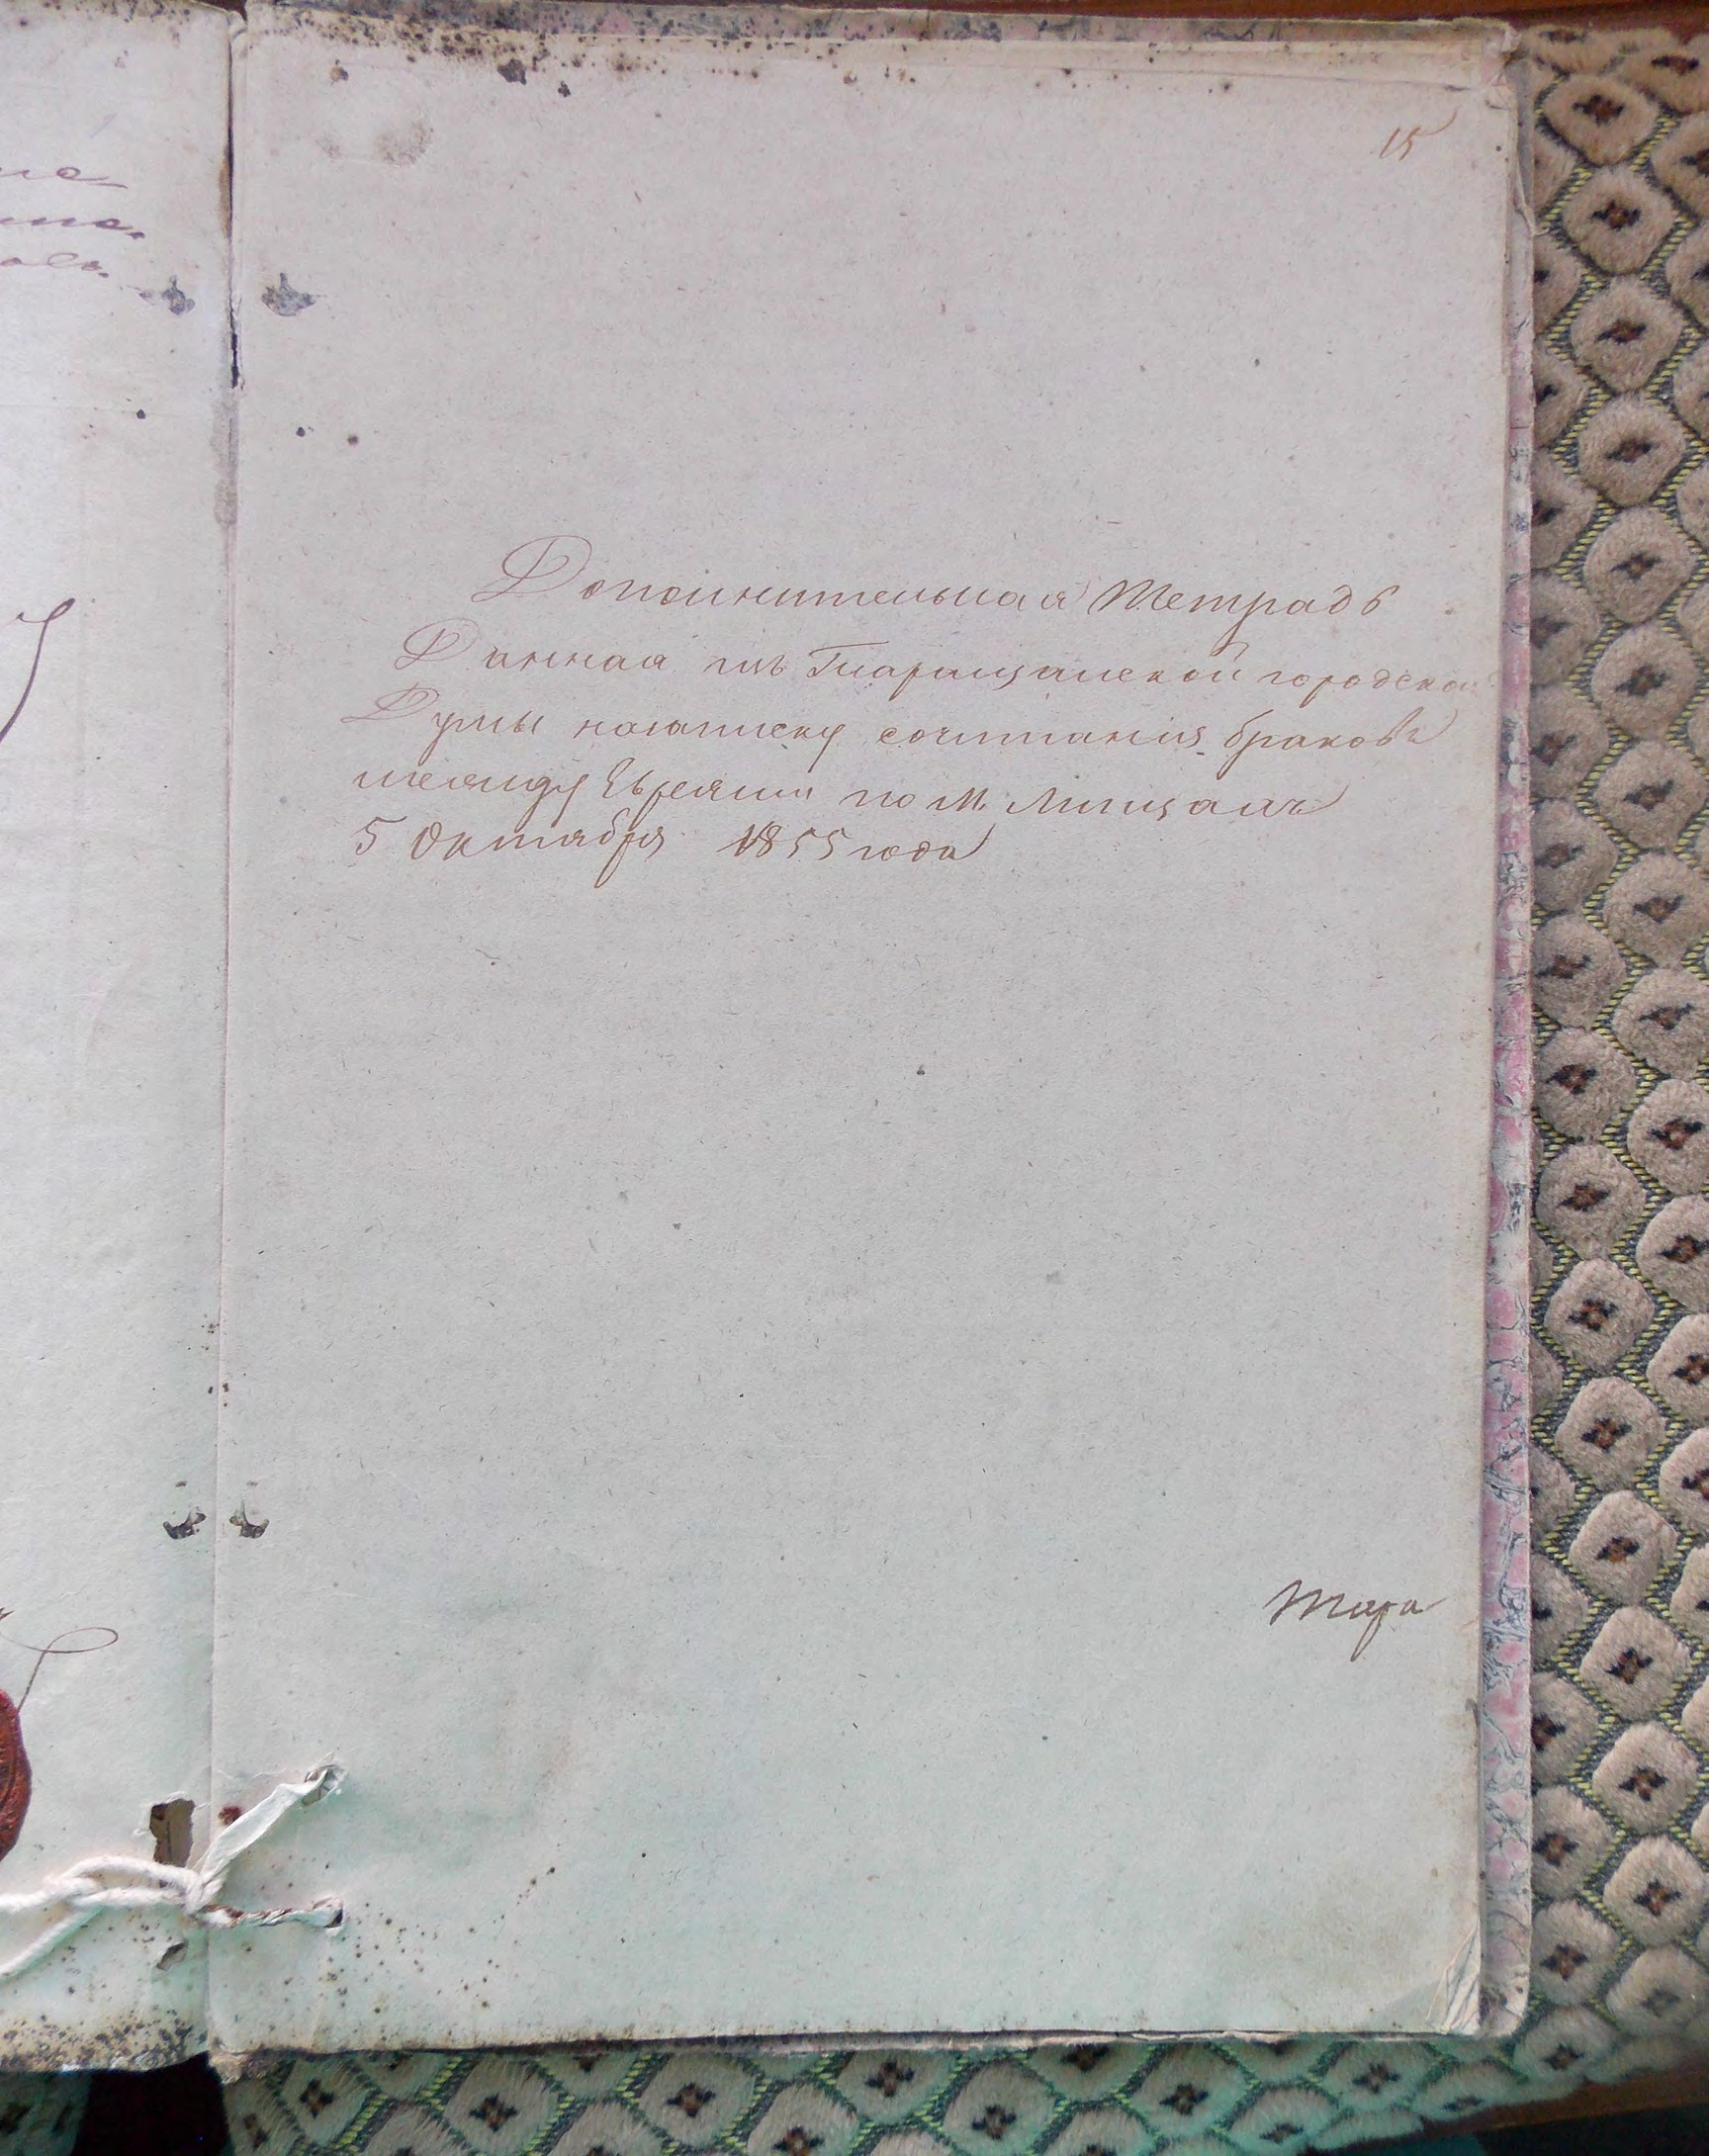 15
Дополнительная Тетрадь
Данная изъ Таращанской городской
Думы назаписку сочитания браковъ
между Евреями по М. Лищанъ
5 Октября 1855 года
Тара